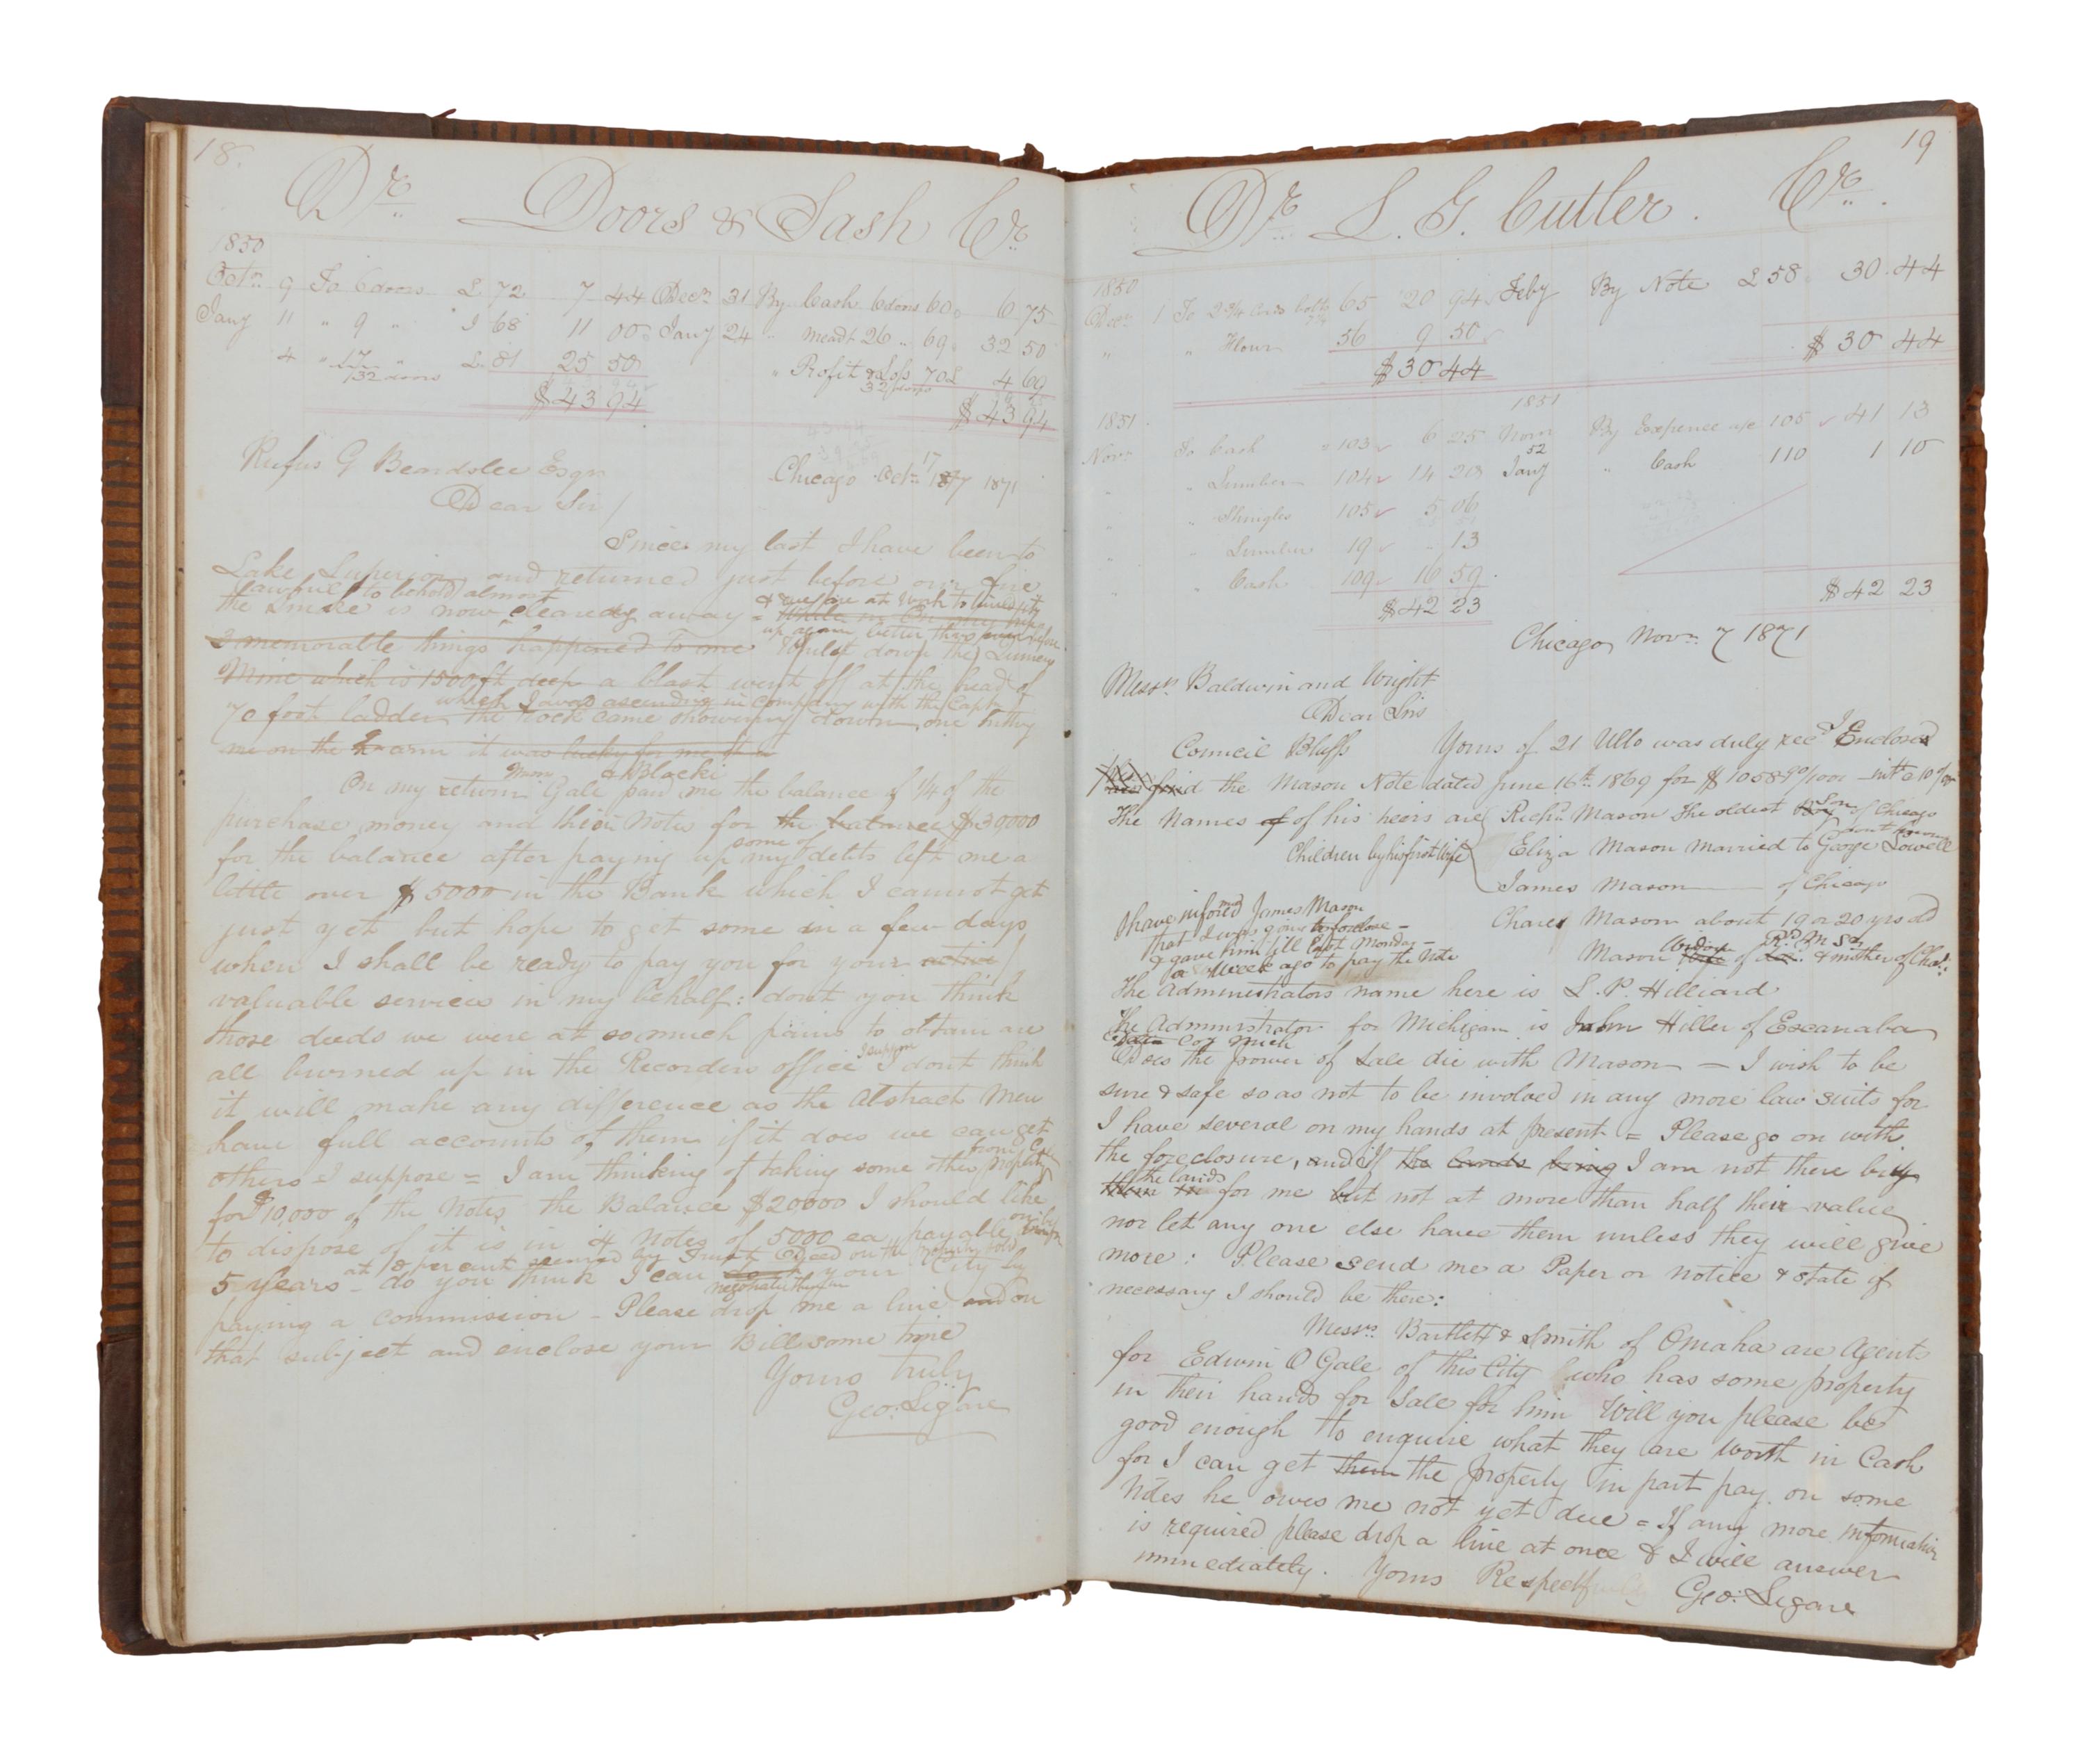 18.
Dr. Doors & Sash Cr.
1850
Octr. 9 To 6 doors £ 72 7 44 Decr 31 By Cash 6 doors 60 6 75
Jany 11 " 9 " £ 68 11 00 Jany 24 " Meadt 26 " 69 32 50
4 " 17 " £ 81 25 50 " Profit & Loss 70£ 4 69
132 doors 32 doors
$43 94 $43 94
Rufus G Beardslee Esqr Chicago Octr. 17 1871
Dear Sir/
Since my last I have been to
Lake Superior and returned just before our fire
lawful to behold almost
the smoke is now cleared away = & we are at work to build city
up again better than ever before
2 memorable things happened to me Whilst down the Summy
Mine which is 1500 ft deep a blast went off at the head of
which I was ascending in company with the Capt
70 foot ladder the rock came showering down one hitting
me on the arm it was lucky for me it a
On my return Messrs Gale & Blocki paid me the balance of 1/4 of the
purchase money and their Notes for the balance $30000
for the balance after paying up some of my debts left me a
little over $5000 in the Bank which I cannot get
just yet but hope to get some in a few days
when I shall be ready to pay you for your active
valuable services in my behalf: dont you think
those deeds we were at so much pains to obtain are
all burned up in the Recorders office I suppose I dont think
it will make any difference as the Abstract Men
have full accounts of them if it does we can get
others I suppose = I am thinking of taking some other property from
for $10,000 of the Notes the Balance $20000 I should like
to dispose of it is in 4 Notes of 5000 ea payable on or before
5 Years at 10 per cent secured by Trust Deed on the property sold
do you think I can negotiate them in your City by
paying a commission - Please drop me a line and on
that subject and enclose your Bill some time
Yours truly
Geo: Legare
19
Dr. L. G. Cutler. Cr.
1850
Decr 1 To 2 3/4 Cords bolts 65 20 94 Feby By Note £58 30.44
" " Flour 56 9 50
$30 44 $30 44
1851 1851
Novr To Cash 103 6 25 Novr By Expense a/c 105 41 13
" Lumber 104 14 20 52 Jany " Cash 110 1 10
" Shingles 105 5 06
" Lumber 19 " 13
" Cash 109 16 59
$42 23 $42 23
Chicago Novr. 7 1871
Messrs Baldwin and Wright
Dear Sirs
Council Bluffs Yours of 21 Ullo was duly recd I Enclosed
find the Mason Note dated June 16th 1869 for $1058 90/100 int @ 10 %
The Names of of his heirs are Richd Mason the oldest Son of Chicago
Children by his first Wife Eliza Mason Married to George Lowell dont know
James Mason — of Chicago
I have informed James Mason
that I was going to foreclose -
& gave him till last Monday -
a Week ago to pay the Note
Chares Mason about 19 or 20 yrs old
Mason Widow of Rd M Sr & mother of Chas:
The Administrators name here is L. P. Hilliard
The Administrator for Michigan is John Hiller of Escanaba
Does the power of Sale die with Mason — I wish to be
sure & safe so as not to be involved in any more law suits for
I have several on my hands at present = Please go on with
the foreclosure, and if the lands bring I am not there buy
the lands
them in for me but not at more than half their value
nor let any one else have them unless they will give
more: Please send me a Paper or notice & state if
necessary I should be there:
Messrs. Bartlett & Smith of Omaha are Agents
for Edwin O Gale of this City who has some property
in their hands for Sale for him Will you please be
good enough to enquire what they are worth in Cash
for I can get them the property in part pay. on some
Notes he owes me not yet due = If any more information
is required please drop a line at once & I will answer
immediately. Yours Respectfully Geo: Legare